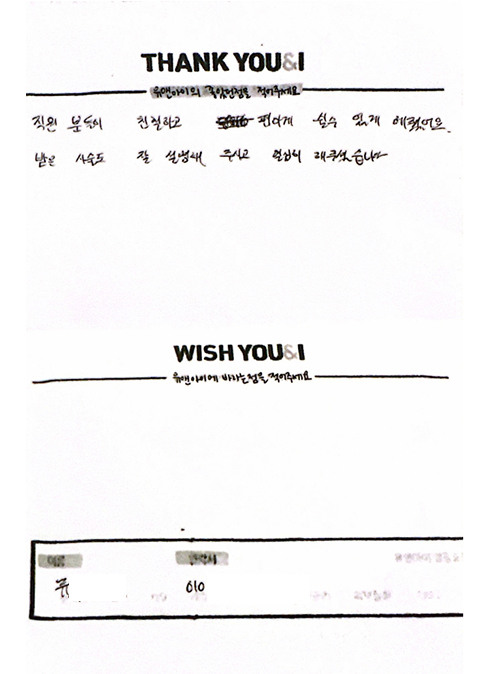 THANK YOU&I
유앤아이의 좋았던점을 적어주세요
직원 분들이 친절하고 편하게 쉴수 있게 해줬어요.
받은 시술도 잘 설명해 주시고 열심히 해주셨습니다
WISH YOU&I
유앤아이에 바라는점을 적어주세요
이름 연락처
류 010